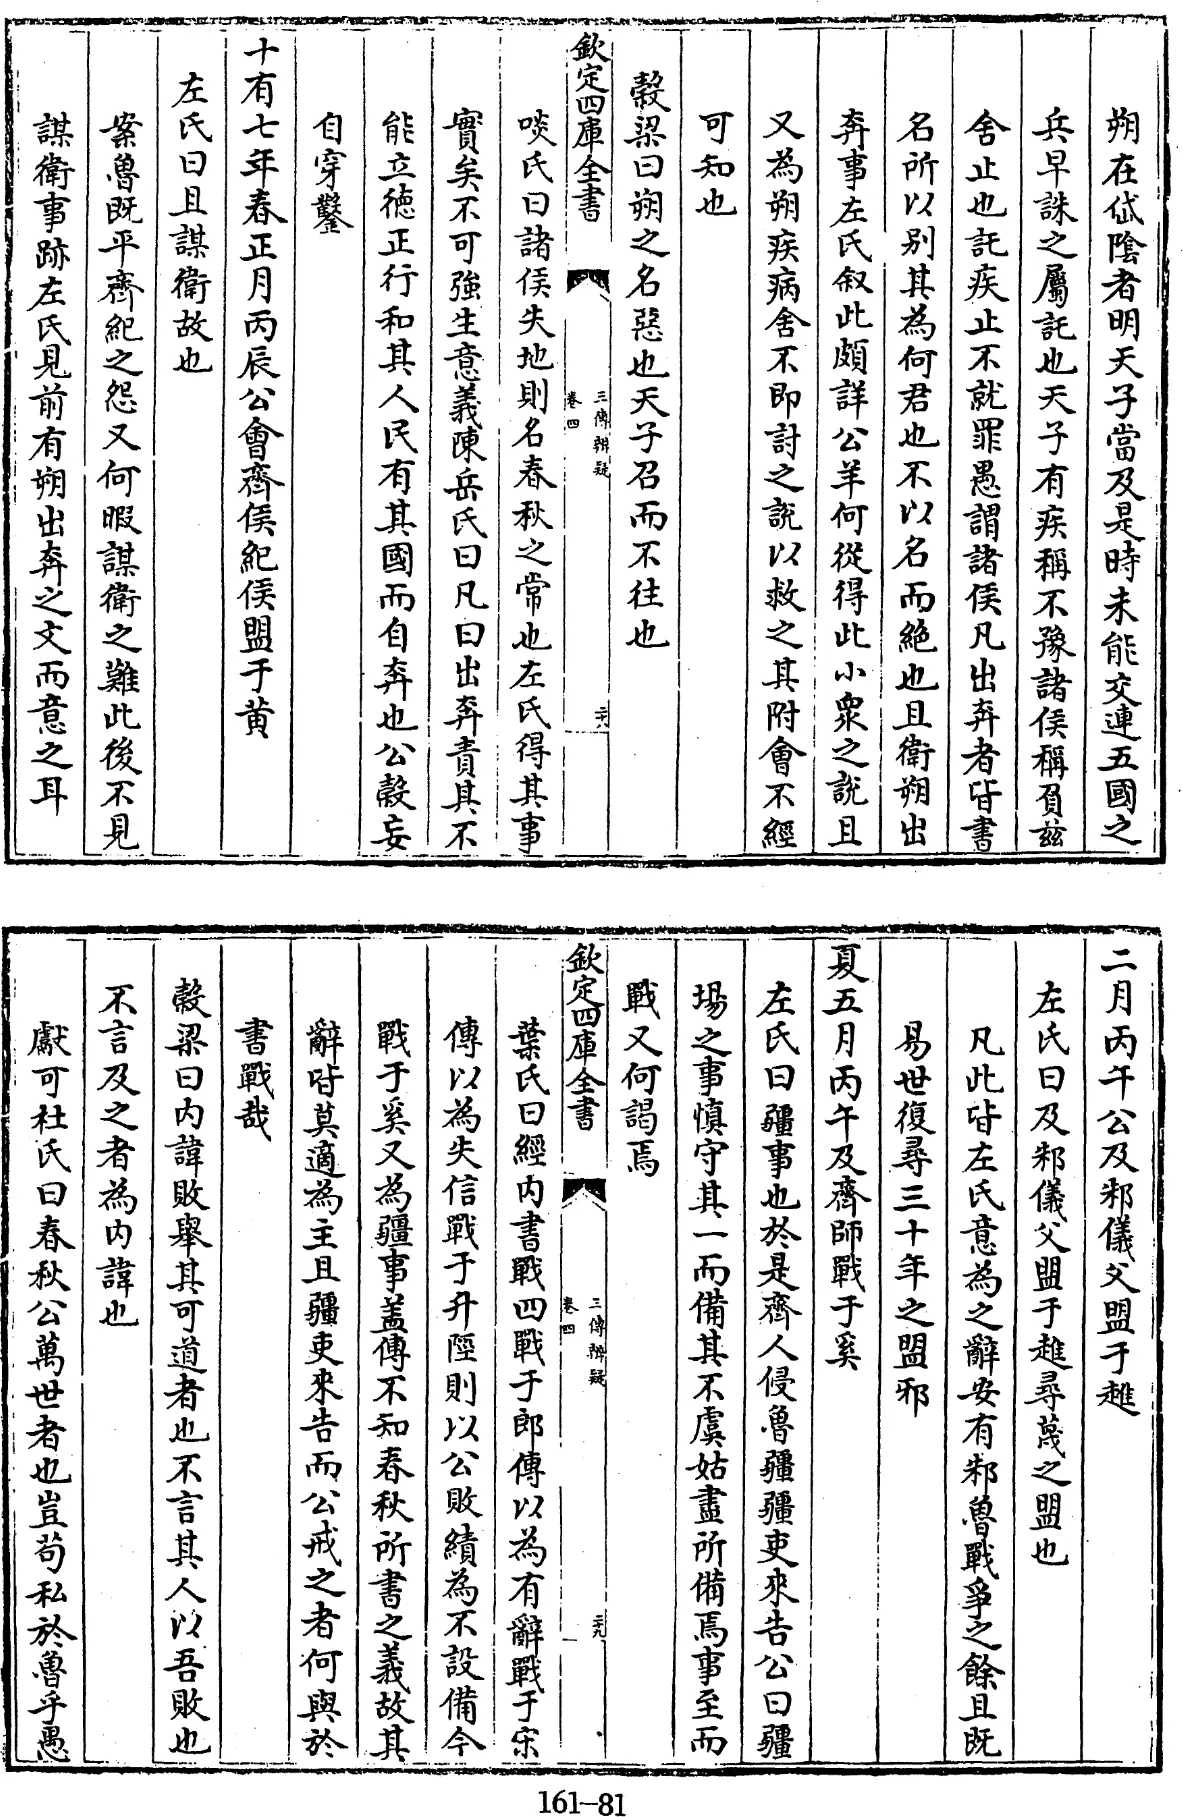 朔在岱陰者明天子當及是時未能交連五國之
兵早誅之屬託也天子有疾稱不豫諸侯稱負玆
舍止也託疾止不就罪愚謂諸侯凡出奔者皆書
名所以别其為何君也不以名而絶也且衛朔出
奔事左氏叙此頗詳公羊何從得此小衆之說且
又為朔疾病舍不即討之說以救之其附會不經
可知也
穀梁曰朔之名惡也天子召而不往也
欽定四庫全書
三傳辨疑
卷四
二十八
啖氏曰諸侯失地則名春秋之常也左氏得其事
實矣不可強生意義陳岳氏曰凡曰出奔責其不
能立德正行和其人民有其國而自奔也公穀妄
自穿鑿
十有七年春正月丙辰公會齊侯紀侯盟于黄
左氏曰且謀衛故也
案魯既平齊紀之怨又何暇謀衛之難此後不見
謀衛事跡左氏見前有朔出奔之文而意之耳
二月丙午公及邾儀父盟于趡
左氏曰及邾儀父盟于趡尋蔑之盟也
凡此皆左氏意為之辭安有邾魯戰爭之餘且既
易世復尋三十年之盟邪
夏五月丙午及齊師戰于奚
左氏曰疆事也於是齊人侵魯疆疆吏來告公曰疆
場之事慎守其一而備其不虞姑盡所備焉事至而
戰又何謁焉
欽定四庫全書
三傳辨疑
卷四
二十九
葉氏曰經内書戰四戰于郎傳以為有辭戰于宋
傳以為失信戰于升陘則以公敗績為不設備今
戰于奚又為疆事盖傳不知春秋所書之義故其
辭皆莫適為主且疆吏來告而公戒之者何與於
書戰哉
穀梁曰内諱敗舉其可道者也不言其人以吾敗也
不言及之者為内諱也
獻可杜氏曰春秋公萬世者也豈苟私於魯乎愚
161-81